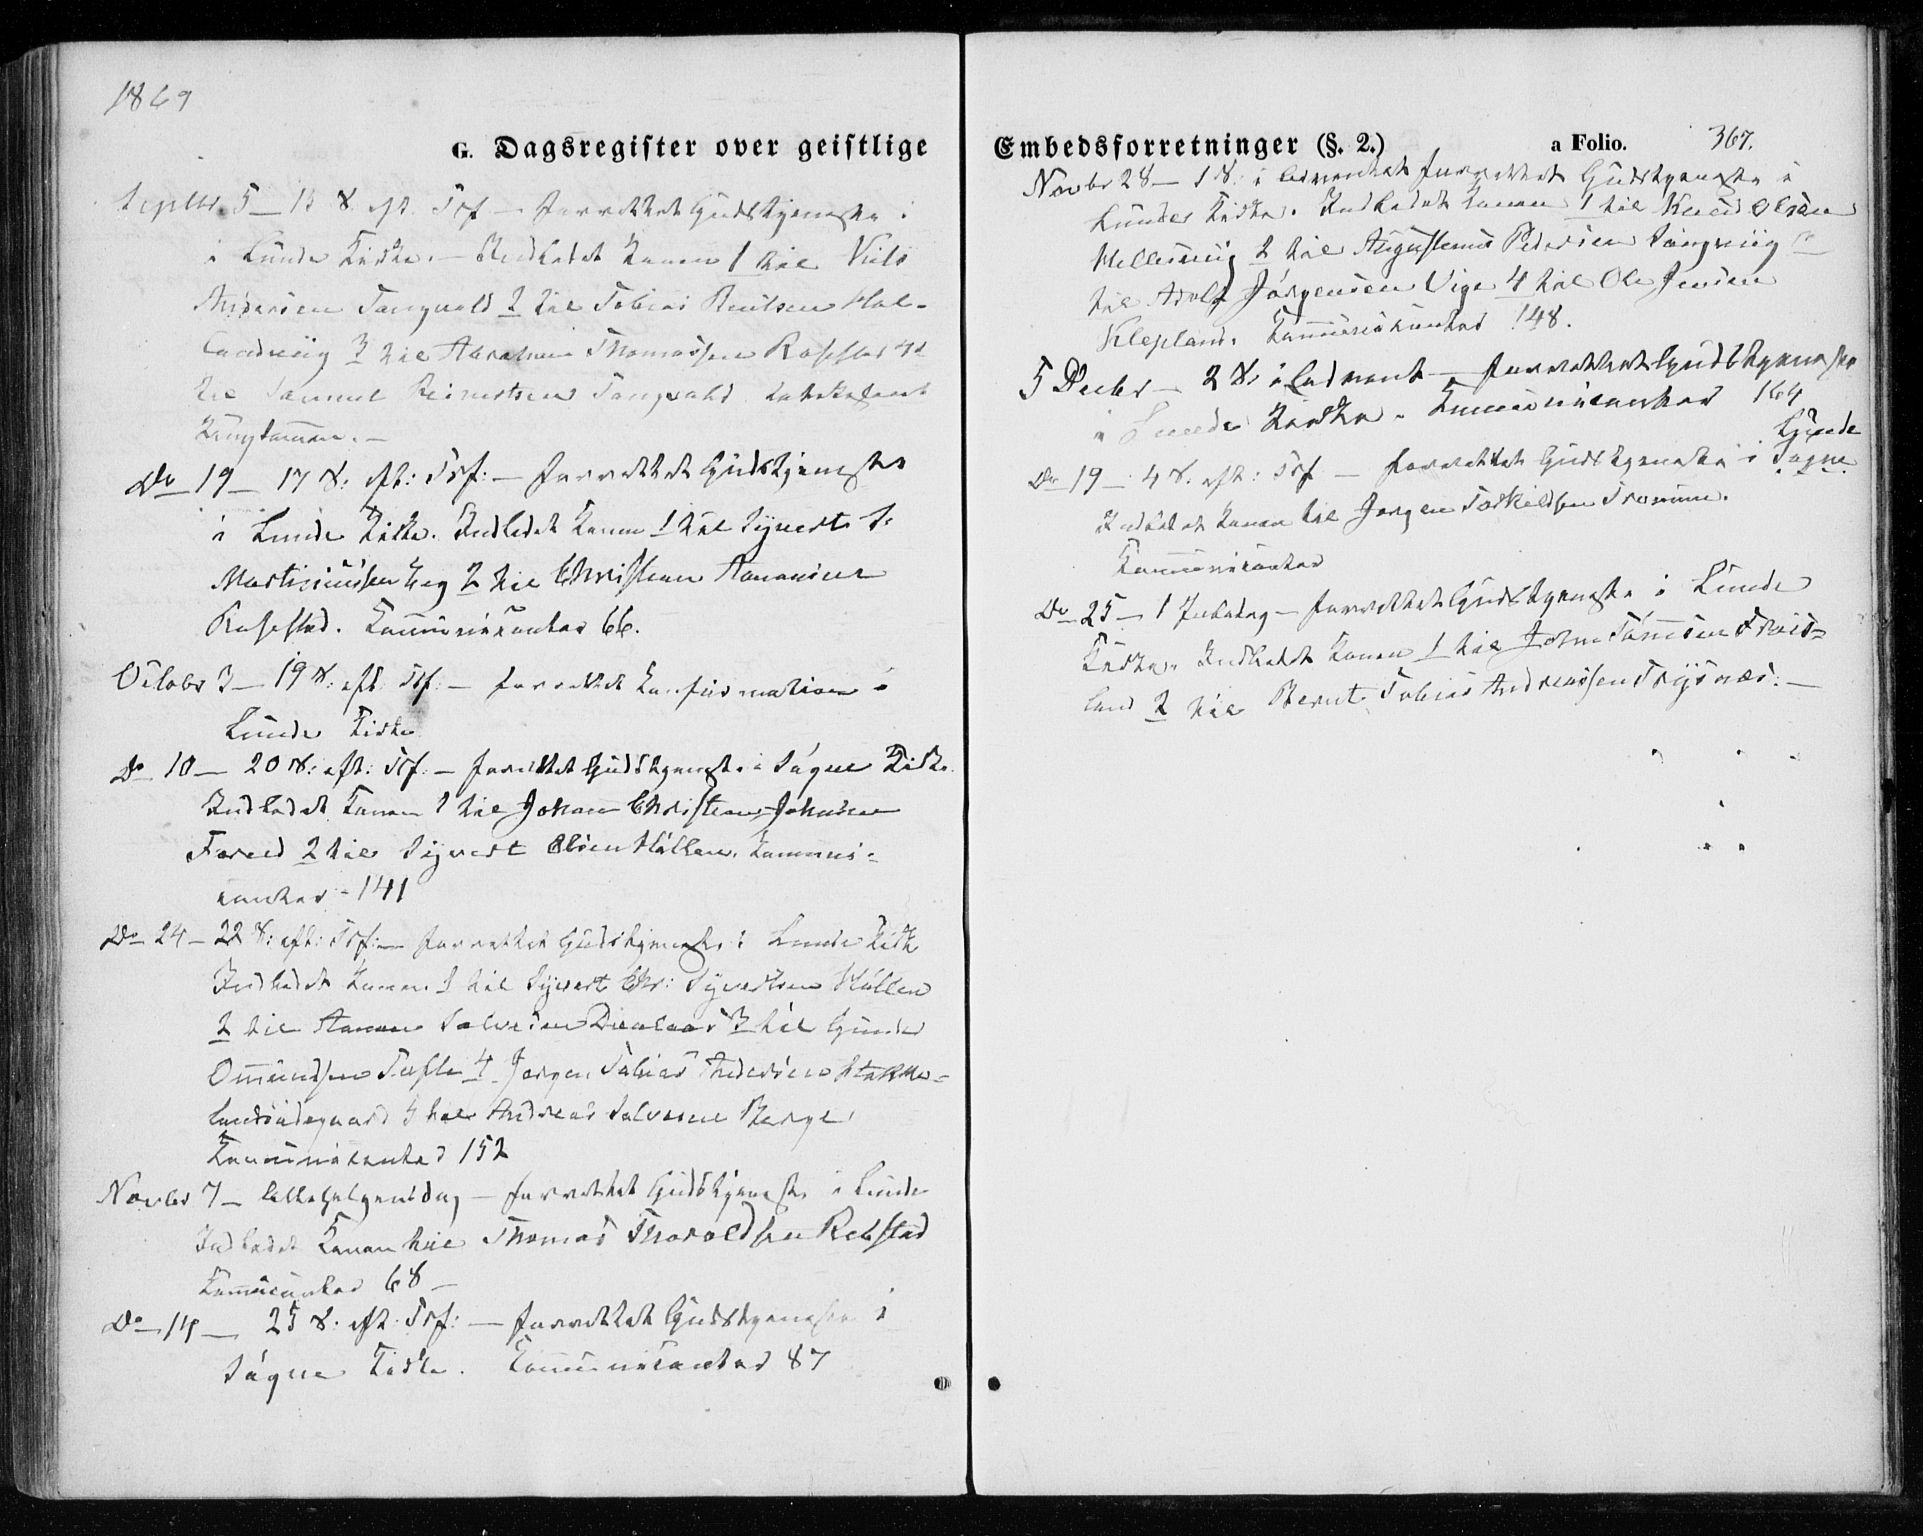 1869
G. Dagsregister over geistlige
Septbr. 5 – 15 S. eft. Trf – forrettet Gudstjeneste
i Lunde Kirke. – Indledet Konen 1 til Niels
Andersen Tangvald 2 til Tobias Berntsen Hal-
landviig 3 til Abraham Thomassen Rosstad 4
til Samuel Reinertsen Tangvald

Do 19 – 17 S: eft: Trf: – forrettet Gudstjeneste
i Lunde Kirke. Indledet Konen 1 til Syvert S:
Martiniussen 2 til Christian Aanonsen
Rosstad. Kommunikanter 66.
Octobr 3 – 19 S: eft: Trf: – forrettet Konfirmation i
Lunde Kirke
Do 10 – 20 S: eft: Trf: – forrettet Gudstjeneste i Søgne Kirke.
Indledet Konen 1 til Johan Christian Johnsen
2 til Syvert Olsen Høllen. Kommuni-
canter – 141
Do 24 – 22 S: eft: Trf: – forrettet Gudstjeneste i Lunde Kirke
Indledet Konen 1 til Syvert Chr: Syvertsen Høllen
2 til Aanon Salvesen 3 til Gunder
Omundsen Tofte 4 Jørgen Tobias Andersen Stokke-
landsødegaard 5 til Andreas Salvesen Berge
Kommunicanter 152
Novbr 7 – Allehelgensdag – forrettet Gudstjeneste i Lunde
Indledet Konen til Thomas Thoroldsen Rebstad
Kommunicanter 68 –
Do 14 – 25 S. eft. Trf: – forrettet Gudstjeneste i
Søgne Kirke. Kommunicanter 87
Embedsforretninger (§. 2.)
a Folio. 367.
Novbr 28 – 1 S: i Adventet forrettet Gudstjeneste i
Lunde Kirke. Indledet Konen 1 til Knud Olsen
Hellesviig 2 til Augustinus Pedersen Langviig
til Adolf Jørgensen Vige 4 til Ole Jensen
Klepland. Kommunikanter 148.
5 Decbr – 2 S. i Advent – forrettet Gudstjeneste
i Lunde Kirke. Kommunicanter 164
Do 19 – 4 S. eft: Trf – forrettet Gudstjeneste i Søgne Lunde
Indledet Konen til Jørgen Torkildsen Tromme.
Kommunicanter
Do 25 – 1 Juledag – forrettet Gudstjeneste i Lunde
Kirke. Indledet Konen 1 til John Tønnesen Frøis-
land 2 til Bernt Tobias Andreassen Trysnæs. –